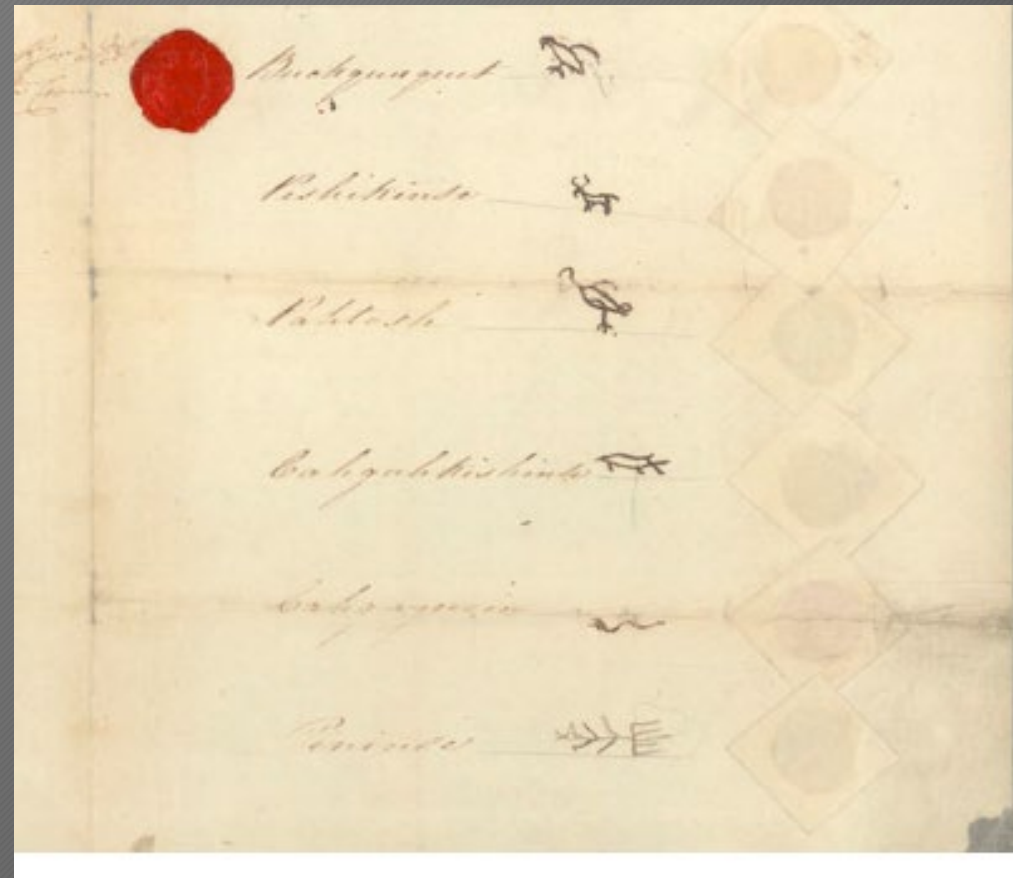 Buckquaquet
Pishikinse
Pahtosh
Cahgahkishinse
Cahgagewin
Peninse